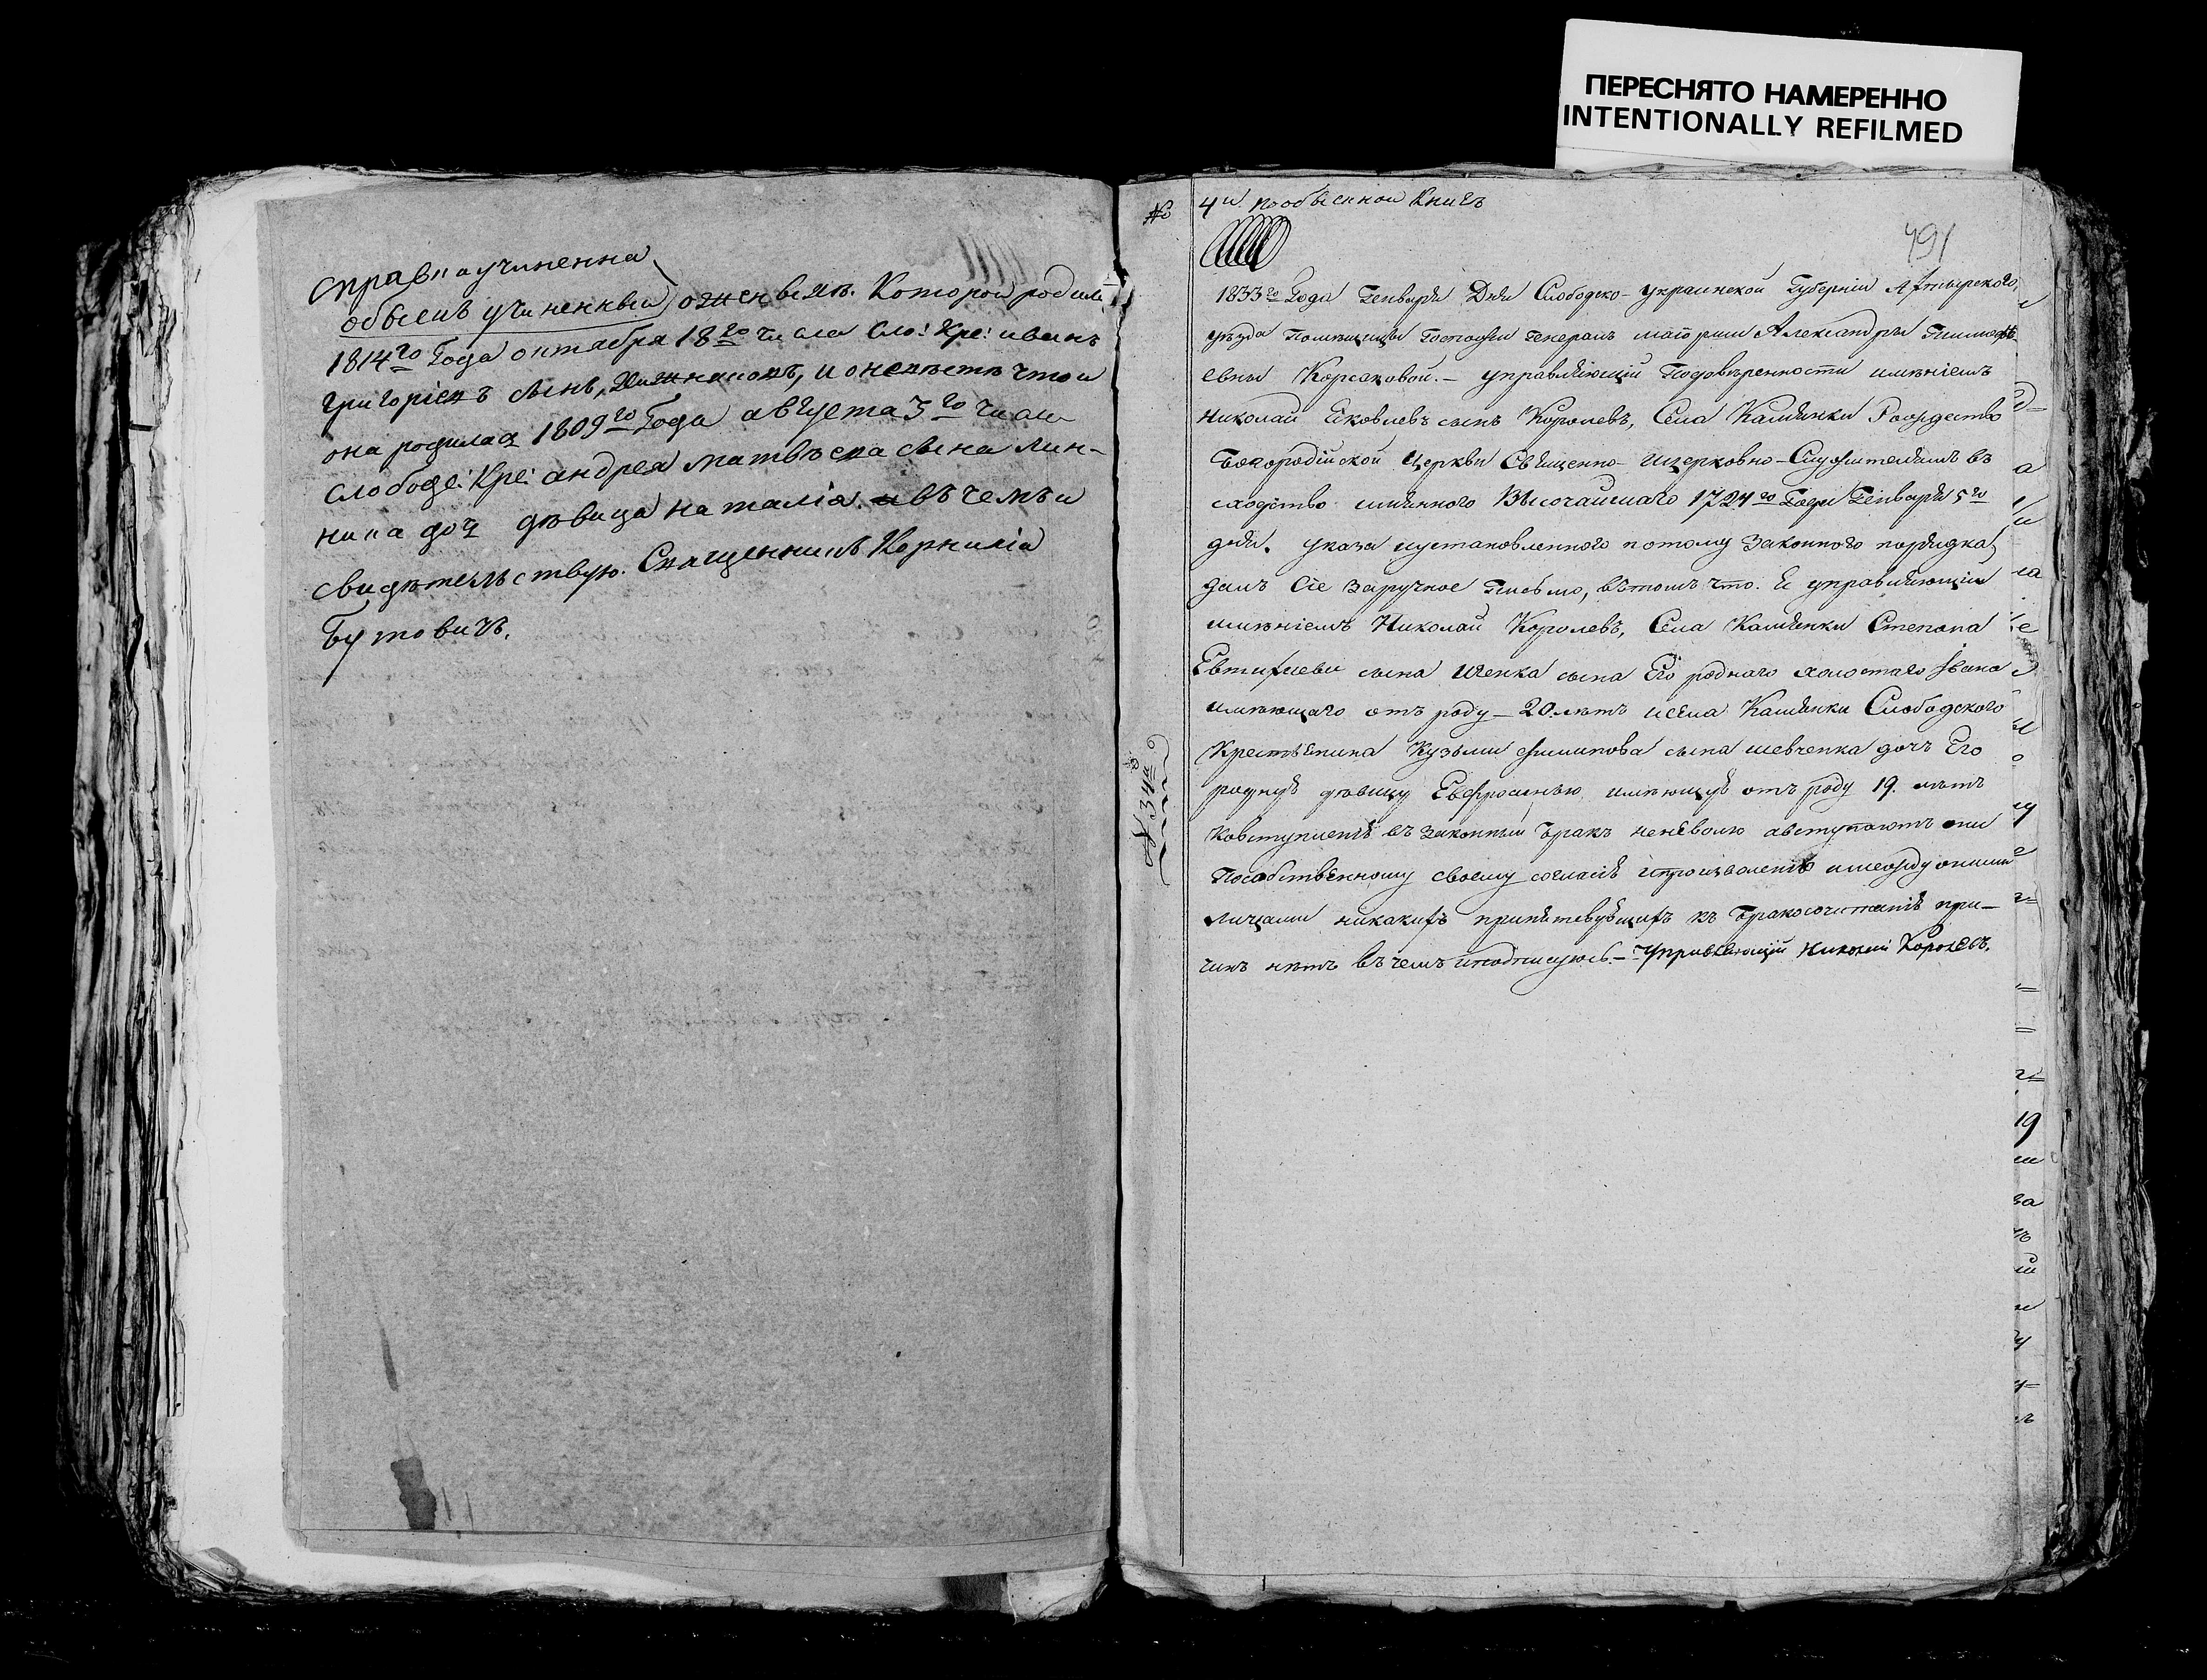 ПЕРЕСНЯТО НАМЕРЕННО
INTENTIONALLY REFILMED
справка учиненна
обыскъ учиненный о женьихѣ. Которой родил
1814го Года октября 18го числа сло: Кре: иванъ
григоріевъ сынъ, и оневѣстѣ что и
она родилас 1809го Года августа 3го числа
слободс: Кре: андрея матвѣева сына лин-
ника доч дѣвица наталіа. въчемъ и
свидѣтельствую. Священникъ Корнилій
Бутовичъ.
№ 4й пообыскной Книгѣ
491
1833го Года Генваря Дня Слободско-Украинской Губерніи Ахтырского,
уѣзда Помѣщицы Госпожи Генералъ маіорши Александры
евны Корсаковой. – управляющій Подовѣренности имѣніемъ
николай Яковлевъ сынъ Королевъ, Села Камянки Рождество
Богородійской Церкви Священно- ицерковно-Служителямъ въ
сходство имянного Высочайшаго 1724го Года Генваря 5го
дня. указа иустановленного потому Законного порядка,
далъ Сіе заручное Письмо, вѣтомъ что. Я управляющій
имѣніемъ Николай Королевъ, Села Камянки Степана
Евтифиева сына сына Его роднаго холостаго Ивана
имѣющаго отъ роду – 20. лѣтъ исела Камянки Слободского
Крестьянина Кузьми Филипова сына шевченка дочь Его
родную дѣвицу Евфросинью имѣющую отъ роду 19. лѣтъ
Ковступленію въ законный Бракъ неневолю авступаютъ они
Пособственному своему согласію ипроизволенію имежду оними
лицами никакихъ припѣтсвующихъ къ Бракосочитанію при-
чинъ нѣтъ въчемъ иподписуюсь. – Управляющій Николай Королевъ.
№ 34й